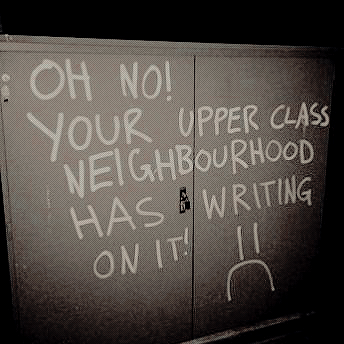 OH NO!
YOUR UPPER CLASS
NEIGHBOURHOOD
HAS WRITING
ON IT!